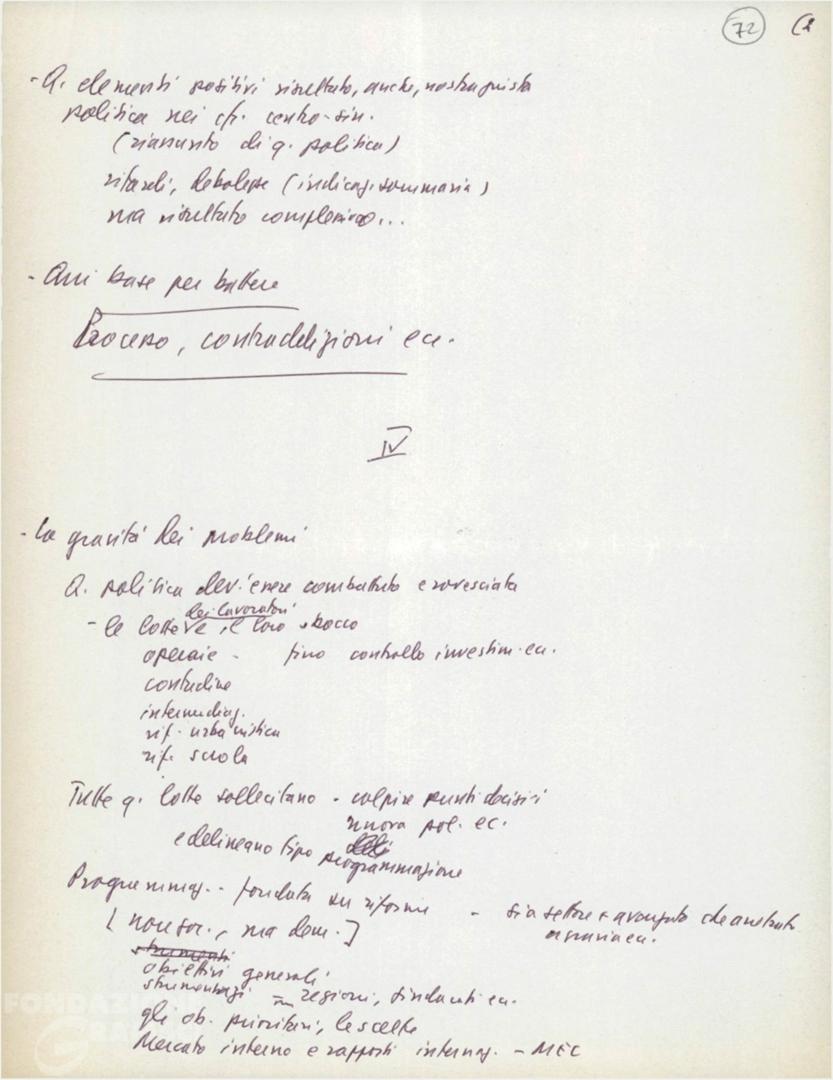 72 (2
- Q. elementi positivi risultato, anche, nostra giusta
politica nei cfr. centro-sin.
(riassunto di q. politica)
ritardi, debolezze (indicaz. sommaria)
ma risultato complessivo...
- Qui base per battere
Processo, contraddizioni ecc.
IV
- La gravità dei problemi
Q. politica dev'essere combattuta e rovesciata
dei lavoratori
- le lotte e il loro sbocco
operaie - fino controllo investim. ecc.
contadine
intermediaz.
rif. urbanistica
rif. scuola
Tutte q. lotte sollecitano - colpire punti decisivi
nuova pol. ec.
e delineano tipo programmazione
Programmaz. - fondata su riforme - sia settore + avanzato che arretrato
[non soc., ma dem.] agraria ecc.
strumenti
obiettivi generali
strumentaz. = regioni, sindacati ecc.
gli ob. prioritari, le scelte
Mercato interno e rapporti internaz. - MEC
FONDAZIONE
GRAMSCI